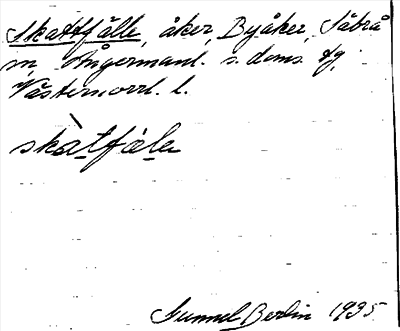 Skattfälle, åker, Byåker, Säbrå
sn, Ångermanl. s. doms. fg,
Västernorrl. l.
skàtfälɐ
Gunnel Berlin 1935